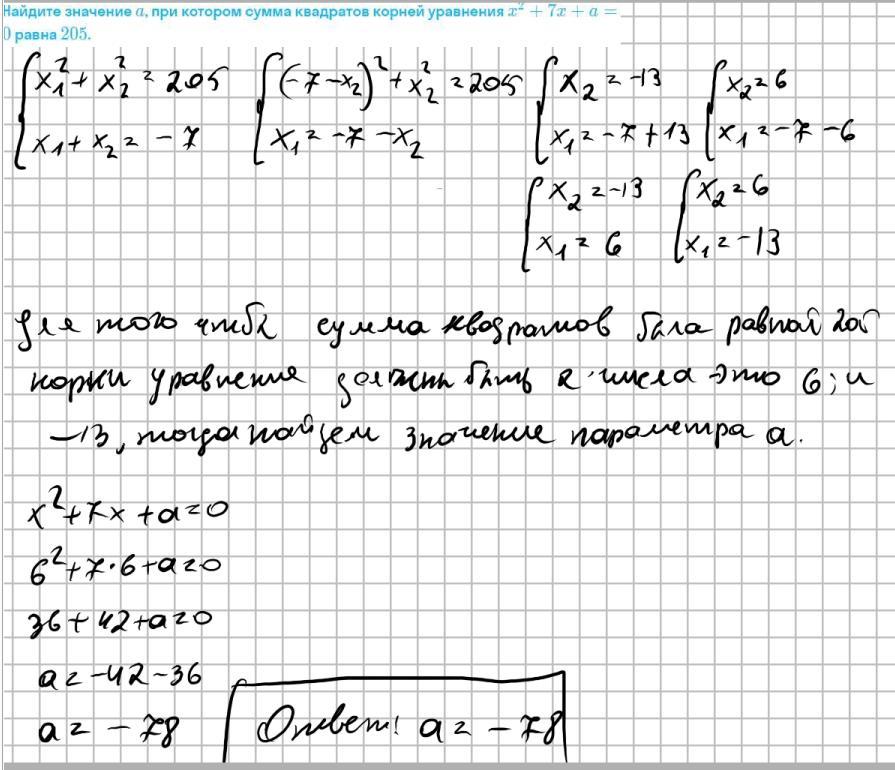 Найдите значение a, при котором сумма квадратов корней уравнения x² + 7x + a =
0 равна 205.
{ x₁² + x₂² = 205 { (-7-x₂)² + x₂² = 205 { x₂ = -13 { x₂ = 6
x₁ + x₂ = -7 x₁ = -7 - x₂ x₁ = -7 + 13 x₁ = -7 - 6
{ x₂ = -13 { x₂ = 6
x₁ = 6 x₁ = -13
Для того чтобы сумма квадратов была равной 205
корни уравнения должны быть 2 числа это 6; и
-13, тогда найдем значение параметра a.
x² + 7x + a = 0
6² + 7·6 + a = 0
36 + 42 + a = 0
a = -42 - 36
a = -78 Ответ: a = -78